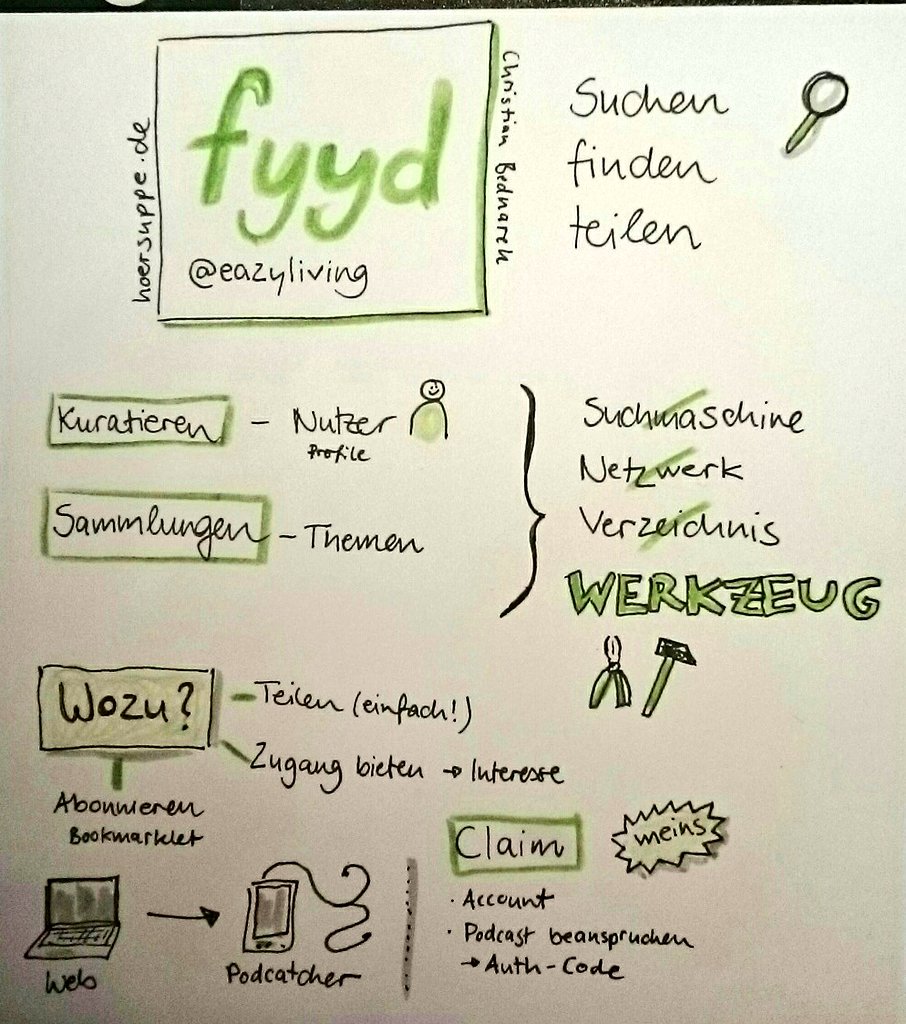 fyyd
@eazyliving
hoersuppe.de
Christian Bednarek
Suchen
finden
teilen
Kuratieren - Nutzer
Profile
Sammlungen - Themen
Suchmaschine
Netzwerk
Verzeichnis
WERKZEUG
Wozu?
- Teilen (einfach!)
Zugang bieten → Interesse
Abonnieren
Bookmarklet
Web
Podcatcher
Claim
meins
· Account
· Podcast beanspruchen
→ Auth-Code